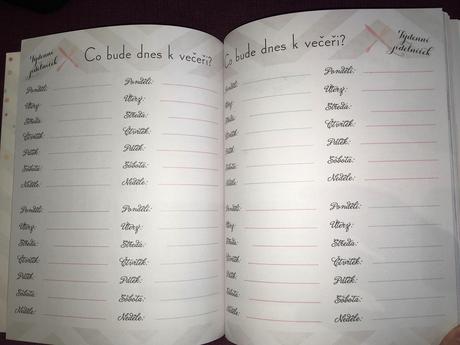 Týdenní
jídelníček
Co bude dnes k večeři?
Pondělí:
Úterý:
Středa:
Čtvrtek:
Pátek:
Sobota:
Neděle:
Pondělí:
Úterý:
Středa:
Čtvrtek:
Pátek:
Sobota:
Neděle:
Pondělí:
Úterý:
Středa:
Čtvrtek:
Pátek:
Sobota:
Neděle:
Pondělí:
Úterý:
Středa:
Čtvrtek:
Pátek:
Sobota:
Neděle:
Co bude dnes k večeři?
Týdenní
jídelníček
Pondělí:
Úterý:
Středa:
Čtvrtek:
Pátek:
Sobota:
Neděle:
Pondělí:
Úterý:
Středa:
Čtvrtek:
Pátek:
Sobota:
Neděle:
Pondělí:
Úterý:
Středa:
Čtvrtek:
Pátek:
Sobota:
Neděle:
Pondělí:
Úterý:
Středa:
Čtvrtek:
Pátek:
Sobota:
Neděle: